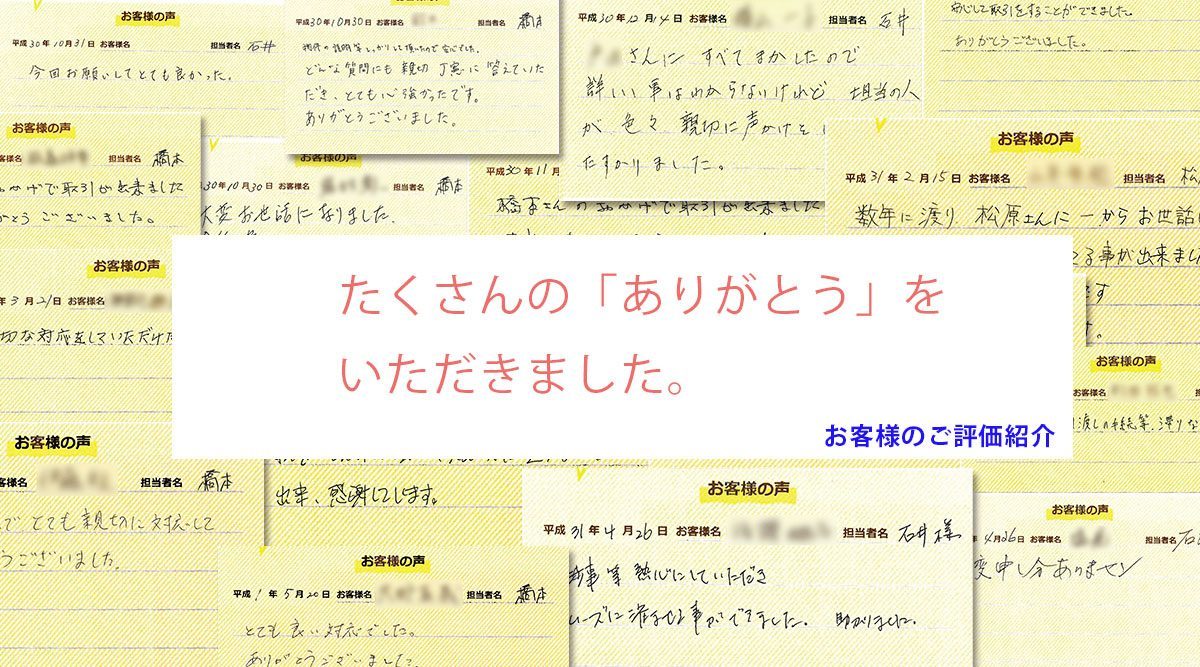 お客様の声
平成30年10月31日 お客様名 担当者名 石井
今回お願いしてとても良かった。
平成30年10月30日 お客様名 担当者名 橋本
物件の説明等しっかりして頂いたので安心でした。
どんな質問にも親切丁寧に答えていた
だき、とても心強かったです。
ありがとうございました。
平成30年12月14日 お客様名 担当者名 石井
さんに すべてまかしたので
詳しい事はわからないけれど 担当の人
が 色々 親切に声かけを
たすかりました。
安心して取引をすることができました。
ありがとうございました。
お客様の声
客様名 担当者名 橋本
おかげで取引が出来ました
がとう ございました。
お客様の声
30年10月30日 お客様名 担当者名 橋本
大変お世話になりました。
平成30年11月
橋本さんのおかげで取引が出来ました
お客様の声
平成31年2月15日 お客様名 担当者名 松
数年に渡り 松原さんに一からお世話
る事が出来まし
す
お客様の声
年3月21日 お客様名
切な対応をしていただけた
たくさんの「ありがとう」を
いただきました。
お客様のご評価紹介
お客様の声
お客様名
渡しの手続等、滞りな
お客様の声
客様名 担当者名 橋本
で とても親切に対応して
うございました。
出来、感謝してします。
お客様の声
平成31年4月26日 お客様名 担当者名 石井様
事等 熱心にしていただき
ムーズに済ませる事ができました。 助かりました。
お客様の声
年4月26日 お客様名 担当者名 石
変申し分ありません
お客様の声
平成1年5月20日 お客様名 担当者名 橋本
とても良い対応でした。
ありがとうございました。